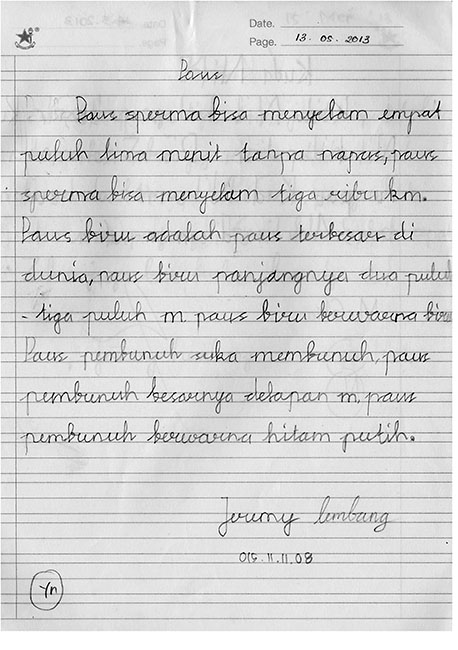 Date.
Page. 13.05.2013
Paus
Paus sperma bisa menyelam empat
puluh lima menit tanpa napas, paus
sperma bisa menyelam tiga ribu km.
Paus biru adalah paus terbesar di
dunia, paus biru panjangnya dua puluh
- tiga puluh m. paus biru berwarna biru
Paus pembunuh suka membunuh, paus
pembunuh besarnya delapan m. paus
pembunuh berwarna hitam putih.
Jeremy Lembang
Yn